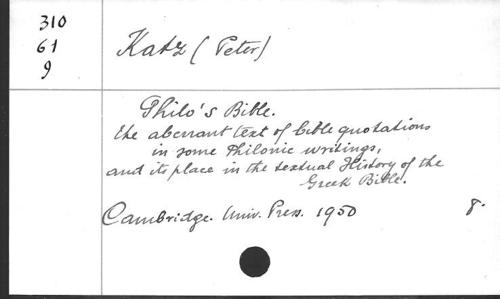 310
61
9
Katz (Peter)
Philo's Bible.
the aberrant text of bible quotations
in some Philonic writings,
and its place in the textual History of the
Greek Bible.
Cambridge. Univ. Press. 1950 8.